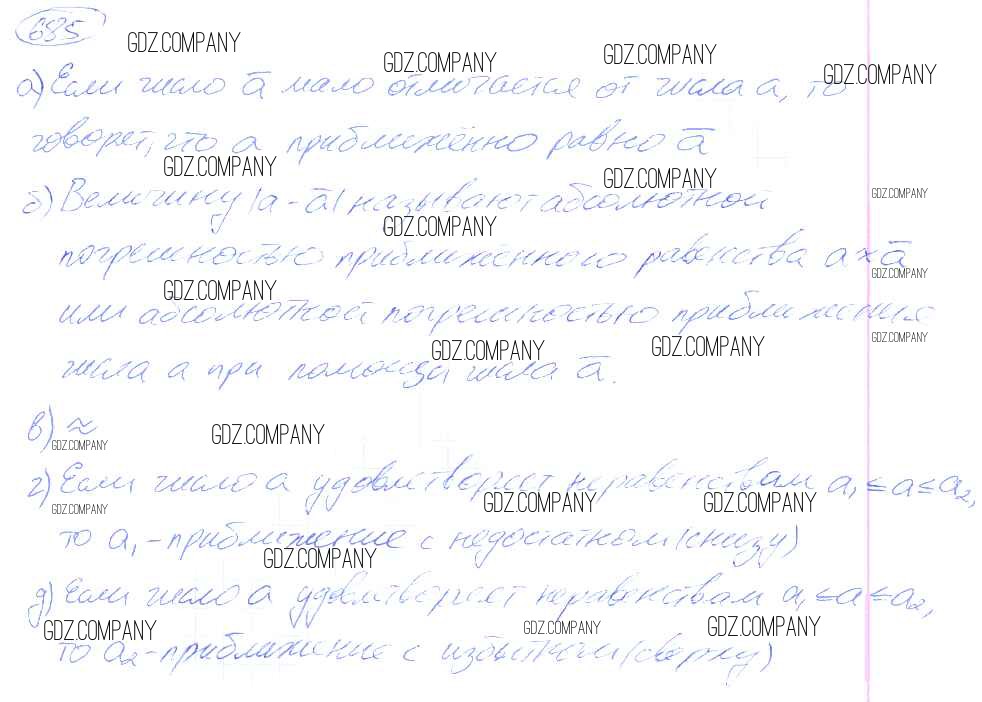 685
GDZ.COMPANY GDZ.COMPANY GDZ.COMPANY GDZ.COMPANY
а) Если число ā мало отличается от числа а, то
говорят, что а приближённо равно ā
GDZ.COMPANY GDZ.COMPANY GDZ.COMPANY
б) Величину |а - ā| называют абсолютной
GDZ.COMPANY
погрешностью приближённого равенства а ≈ ā
GDZ.COMPANY GDZ.COMPANY
или абсолютной погрешностью приближения
GDZ.COMPANY GDZ.COMPANY GDZ.COMPANY
числа а при помощи числа ā.
в) ≈
GDZ.COMPANY GDZ.COMPANY
г) Если число а удовлетворяет неравенствам а₁ ≤ а ≤ а₂,
GDZ.COMPANY GDZ.COMPANY GDZ.COMPANY
то а₁ - приближение с недостатком (снизу)
GDZ.COMPANY
д) Если число а удовлетворяет неравенствам а₁ ≤ а ≤ а₂,
GDZ.COMPANY GDZ.COMPANY GDZ.COMPANY
то а₂ - приближение с избытком (сверху)